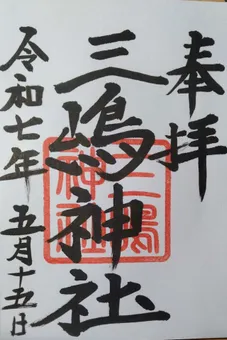 奉拝
三嶋神社
三嶋神社
令和七年
五月十五日